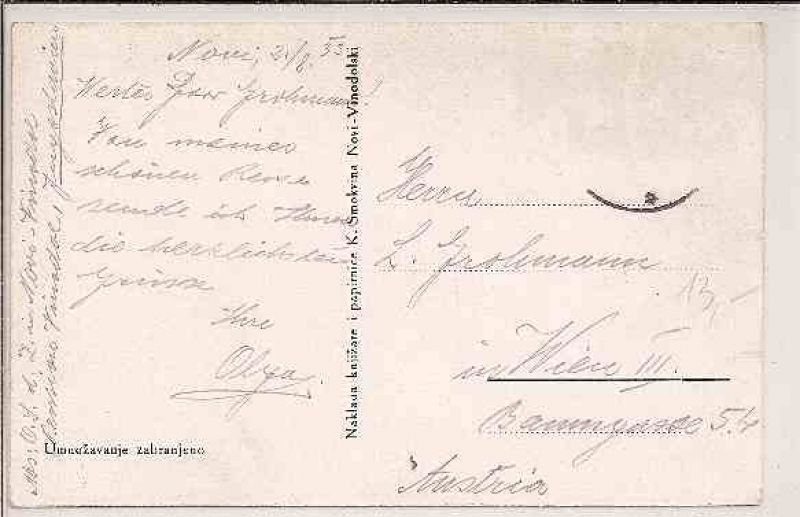 Novi, 2./8. 33
Wertes Frohmann!
Von meiner
schönen Reise
sende ich Ihnen
die herzlichsten
Grüsse
Ihre
Olga.
Novi-Vinodol
Jugoslavien
Umnožavanje zabranjeno
Naklada knjižare i papirnice K. Smokvina Novi-Vinodolski
Herrn
L. Frohmann
13,-
in Wien III.
Baumgasse 54
Austria